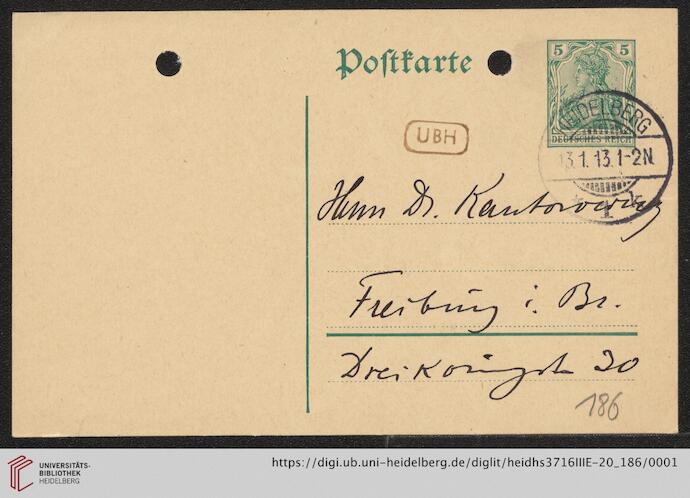 Postkarte
5 5
DEUTSCHES REICH
HEIDELBERG
13.1.13.1-2N.
1.
UBH
Herrn Dr. Kantorowicz
Freiburg i. Br.
Dreikönigstr 30
186
UNIVERSITÄTS-
BIBLIOTHEK
HEIDELBERG
https://digi.ub.uni-heidelberg.de/diglit/heidhs3716IIIE-20_186/0001